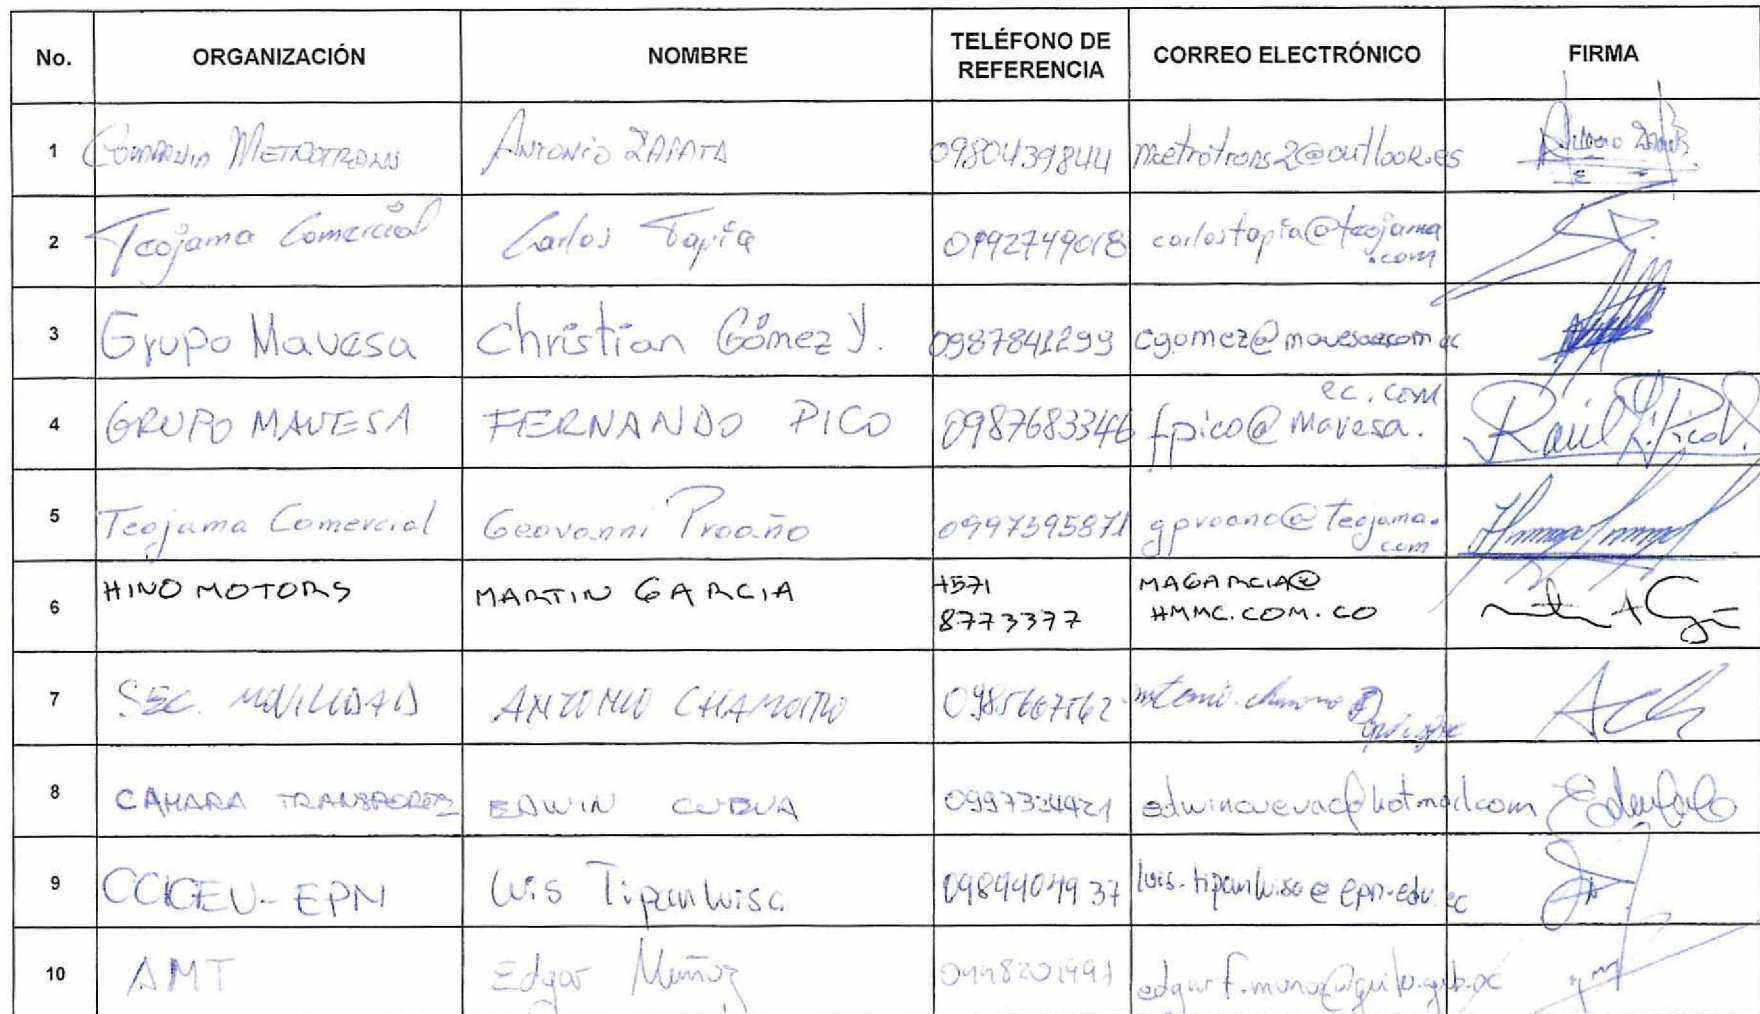 No. ORGANIZACIÓN NOMBRE TELÉFONO DE REFERENCIA CORREO ELECTRÓNICO FIRMA
1 Compañia METROTRANS ANTONIO ZAPATA 0980439844 metrotrans2@outlook.es
2 Teojama Comercial Carlos Tapia 0992749018 carlostapia@teojama.com
3 Grupo Mavesa Christian Gómez Y. 0987841299 cgomez@mavesa.com.ec
4 GRUPO MAVESA FERNANDO PICO 0987683346 fpico@mavesa.ec.com Raúl F. Pico V.
5 Teojama Comercial Geovanni Proaño 0997595871 gproano@teojama.com
6 HINO MOTORS MARTIN GARCIA +571 8773377 MAGARCIA@HMMC.COM.CO
7 SEC. MOVILIDAD ANTONIO CHAMORRO 0985667562
8 CÁMARA TRANSPORTES EDWIN CUEVA 0997324421 edwincuevac@hotmail.com
9 CCICEV-EPN Luis Tipanluisa 0984404937 luis.tipanluisa@epn.edu.ec
10 AMT Edgar Muñoz 0998201991 edgar.f.munoz@quito.gob.ec